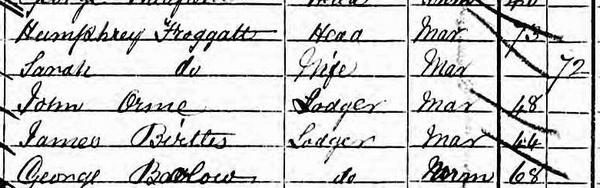 Humphrey Froggatt Head Mar 73
Sarah do Wife Mar 72
John Orme Lodger Mar 48
James Lodger Mar 44
George Barlow do 68